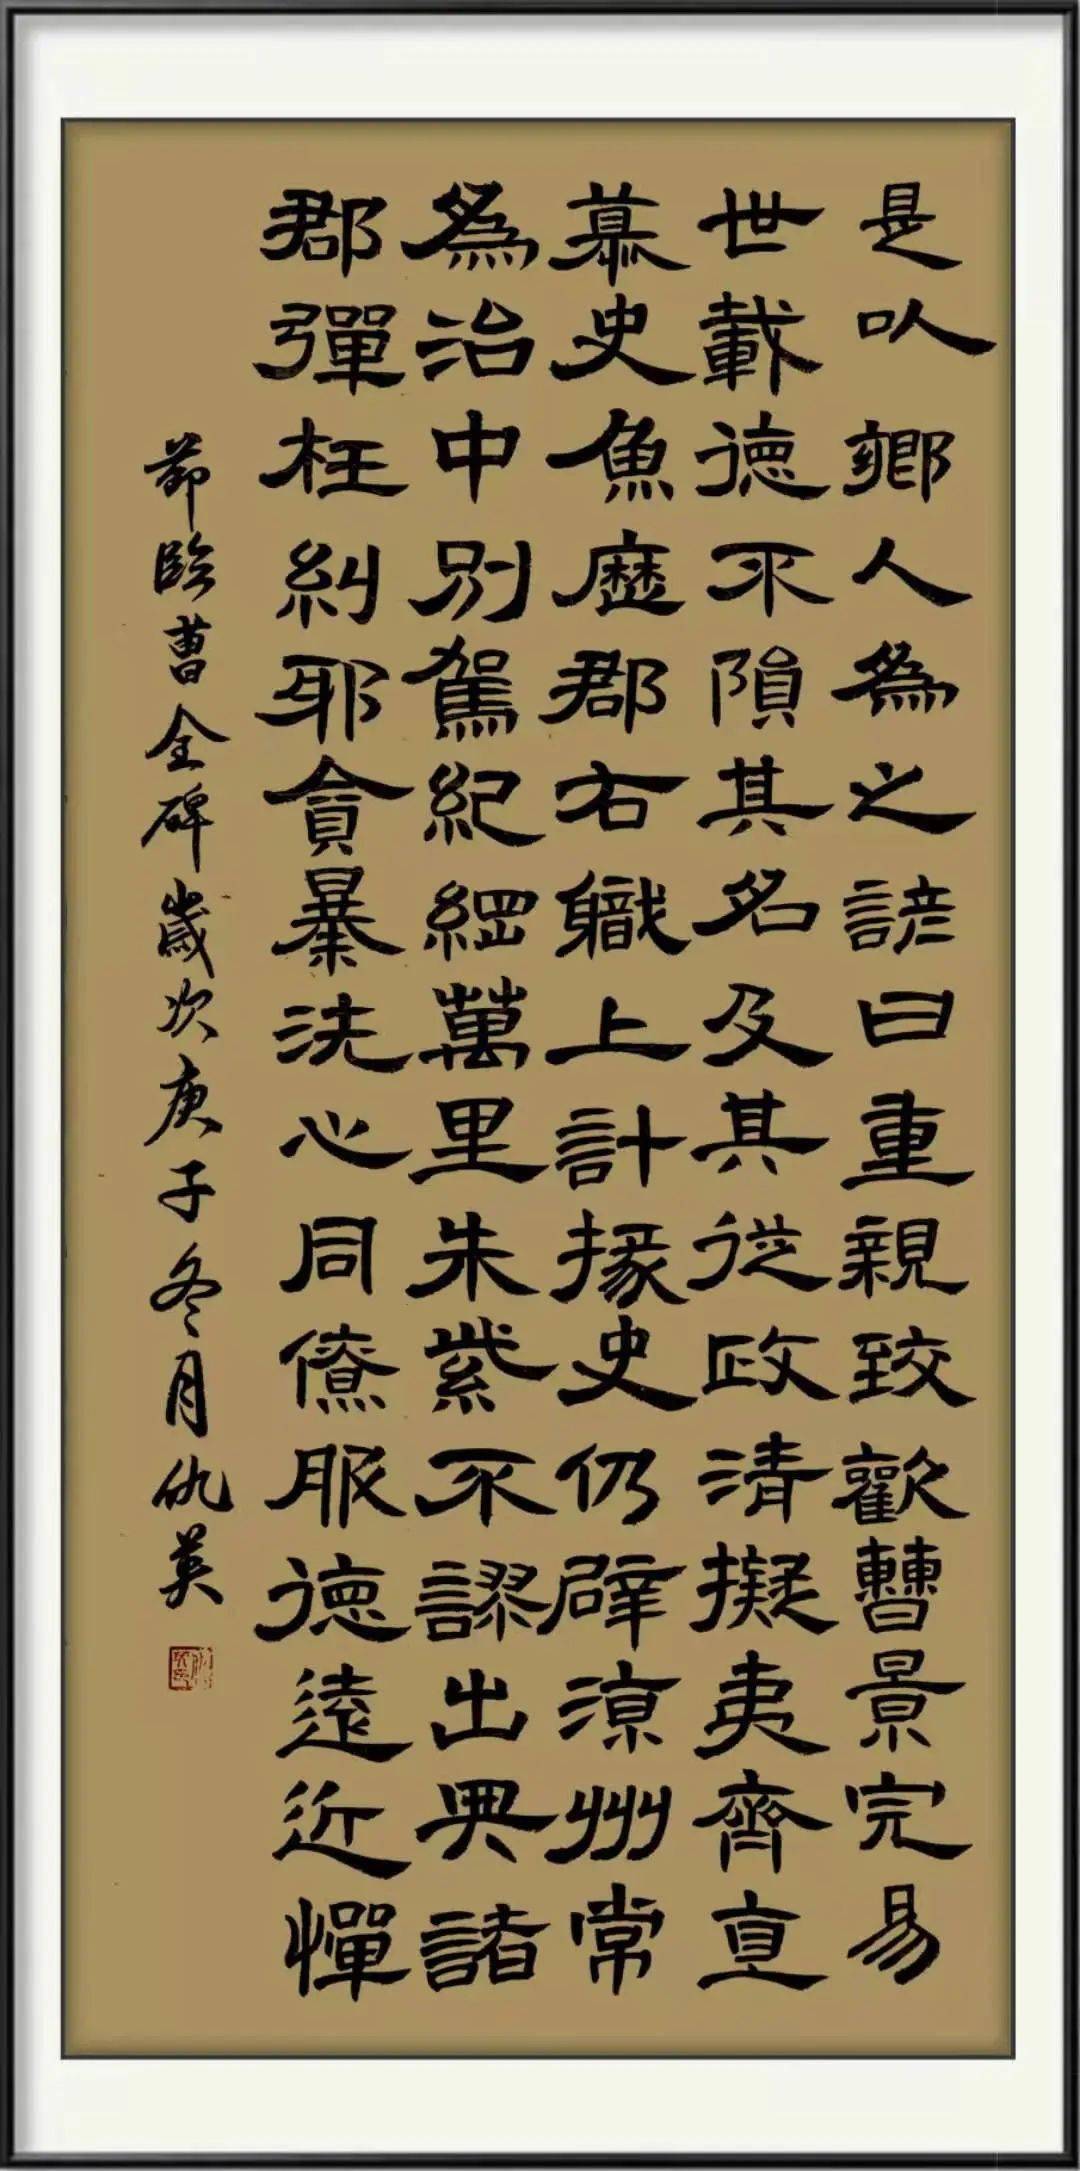 是以鄉人為之諺曰重親致歡曹景完易
世載德不隕其名及其從政清擬夷齊直
慕史魚歷郡右職上計掾史仍辟涼州常
為治中別駕紀綱萬里朱紫不謬出典諸
郡彈枉糾邪貪暴洗心同僚服德遠近憚
節臨曹全碑歲次庚子冬月仇英